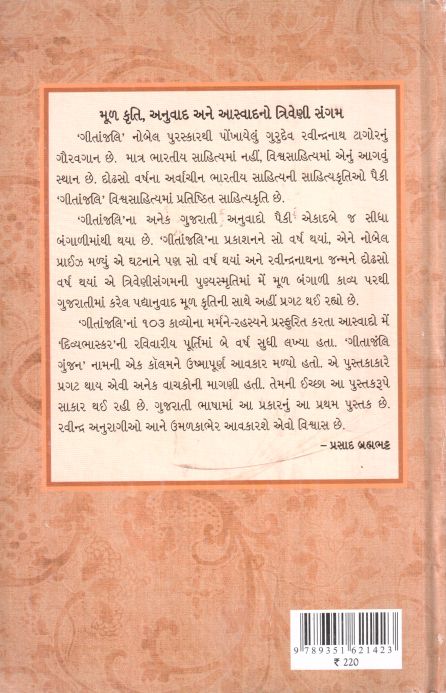 મૂળ કૃતિ, અનુવાદ અને આસ્વાદનો ત્રિવેણી સંગમ
'ગીતાંજલિ' નોબેલ પુરસ્કારથી પોંખાયેલું ગુરુદેવ રવીન્દ્રનાથ ટાગોરનું
ગૌરવગાન છે. માત્ર ભારતીય સાહિત્યમાં નહીં, વિશ્વસાહિત્યમાં એનું આગવું
સ્થાન છે. દોઢસો વર્ષના અર્વાચીન ભારતીય સાહિત્યની સાહિત્યકૃતિઓ પૈકી
'ગીતાંજલિ' વિશ્વસાહિત્યમાં પ્રતિષ્ઠિત સાહિત્યકૃતિ છે.
'ગીતાંજલિ'ના અનેક ગુજરાતી અનુવાદો પૈકી એકાદબે જ સીધા
બંગાળીમાંથી થયા છે. 'ગીતાંજલિ'ના પ્રકાશનને સો વર્ષ થયાં, એને નોબેલ
પ્રાઈઝ મળ્યું એ ઘટનાને પણ સો વર્ષ થયાં અને રવીન્દ્રનાથના જન્મને દોઢસો
વર્ષ થયાં એ ત્રિવેણીસંગમની પુણ્યસ્મૃતિમાં મેં મૂળ બંગાળી કાવ્ય પરથી
ગુજરાતીમાં કરેલ પદ્યાનુવાદ મૂળ કૃતિની સાથે અહીં પ્રગટ થઈ રહ્યો છે.
'ગીતાંજલિ'નાં ૧૦૩ કાવ્યોના મર્મને-રહસ્યને પ્રસ્ફુરિત કરતા આસ્વાદો મેં
'દિવ્યભાસ્કર'ની રવિવારીય પૂર્તિમાં બે વર્ષ સુધી લખ્યા હતા. 'ગીતાજંલિ
ગુંજન' નામની એક કૉલમને ઉષ્માપૂર્ણ આવકાર મળ્યો હતો. એ પુસ્તકાકારે
પ્રગટ થાય એવી અનેક વાચકોની માગણી હતી. તેમની ઈચ્છા આ પુસ્તકરૂપે
સાકાર થઈ રહી છે. ગુજરાતી ભાષામાં આ પ્રકારનું આ પ્રથમ પુસ્તક છે.
રવીન્દ્ર અનુરાગીઓ આને ઉમળકાભેર આવકારશે એવો વિશ્વાસ છે.
– પ્રસાદ બ્રહ્મભટ્ટ
9 789351 621423
₹ 220